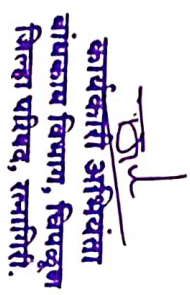 कार्यकारी अभियंता
बांधकाम विभाग, चिपळूण
जिल्हा परिषद, रत्नागिरी.